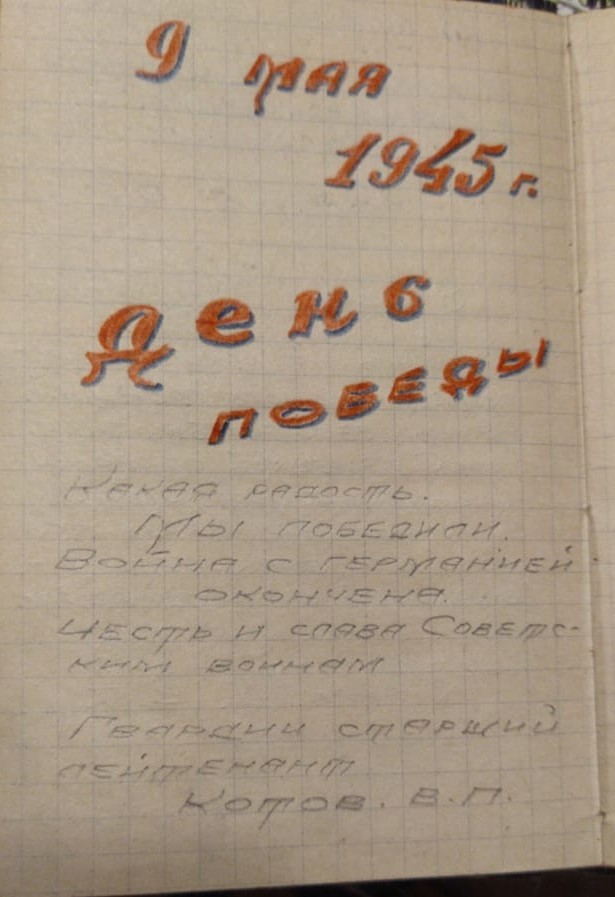 9 мая
1945 г.
День
ПОБЕДЫ
Какая радость.
Мы победили.
Война с Германией
окончена.
Честь и слава Советс-
ким воинам
Гвардии старший
лейтенант
Котов. В.П.